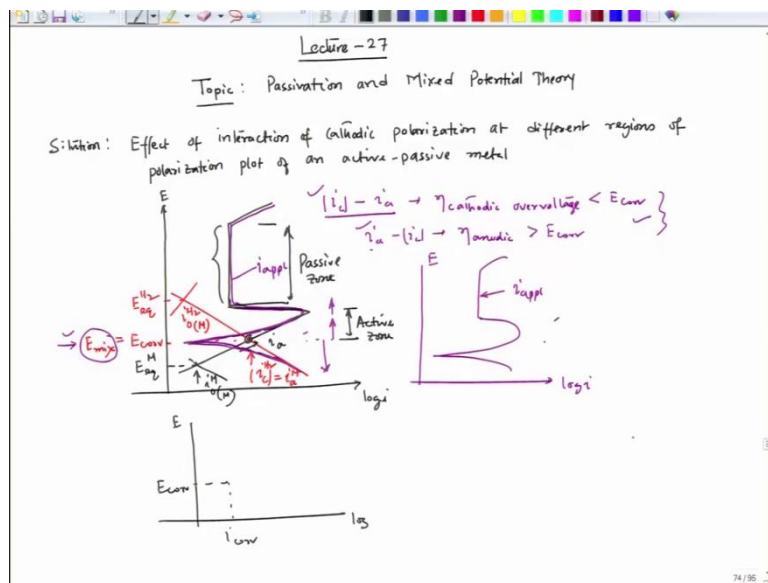 Lecture - 27
Topic: Passivation and Mixed Potential Theory
Situation: Effect of interaction of Cathodic polarization at different regions of
polarization plot of an active-passive metal
|ic| - ia → η cathodic overvoltage < Ecorr
ia - |ic| → η anodic > Ecorr
E
iappl
Passive
zone
Active
zone
Eeq H2
i0(M) H2
→ Emix = Ecorr
ia
Eeq M
i0(M) M
|ic H2| = ia M
log i
E
iappl
log i
E
Ecorr
icorr
log
74 / 95